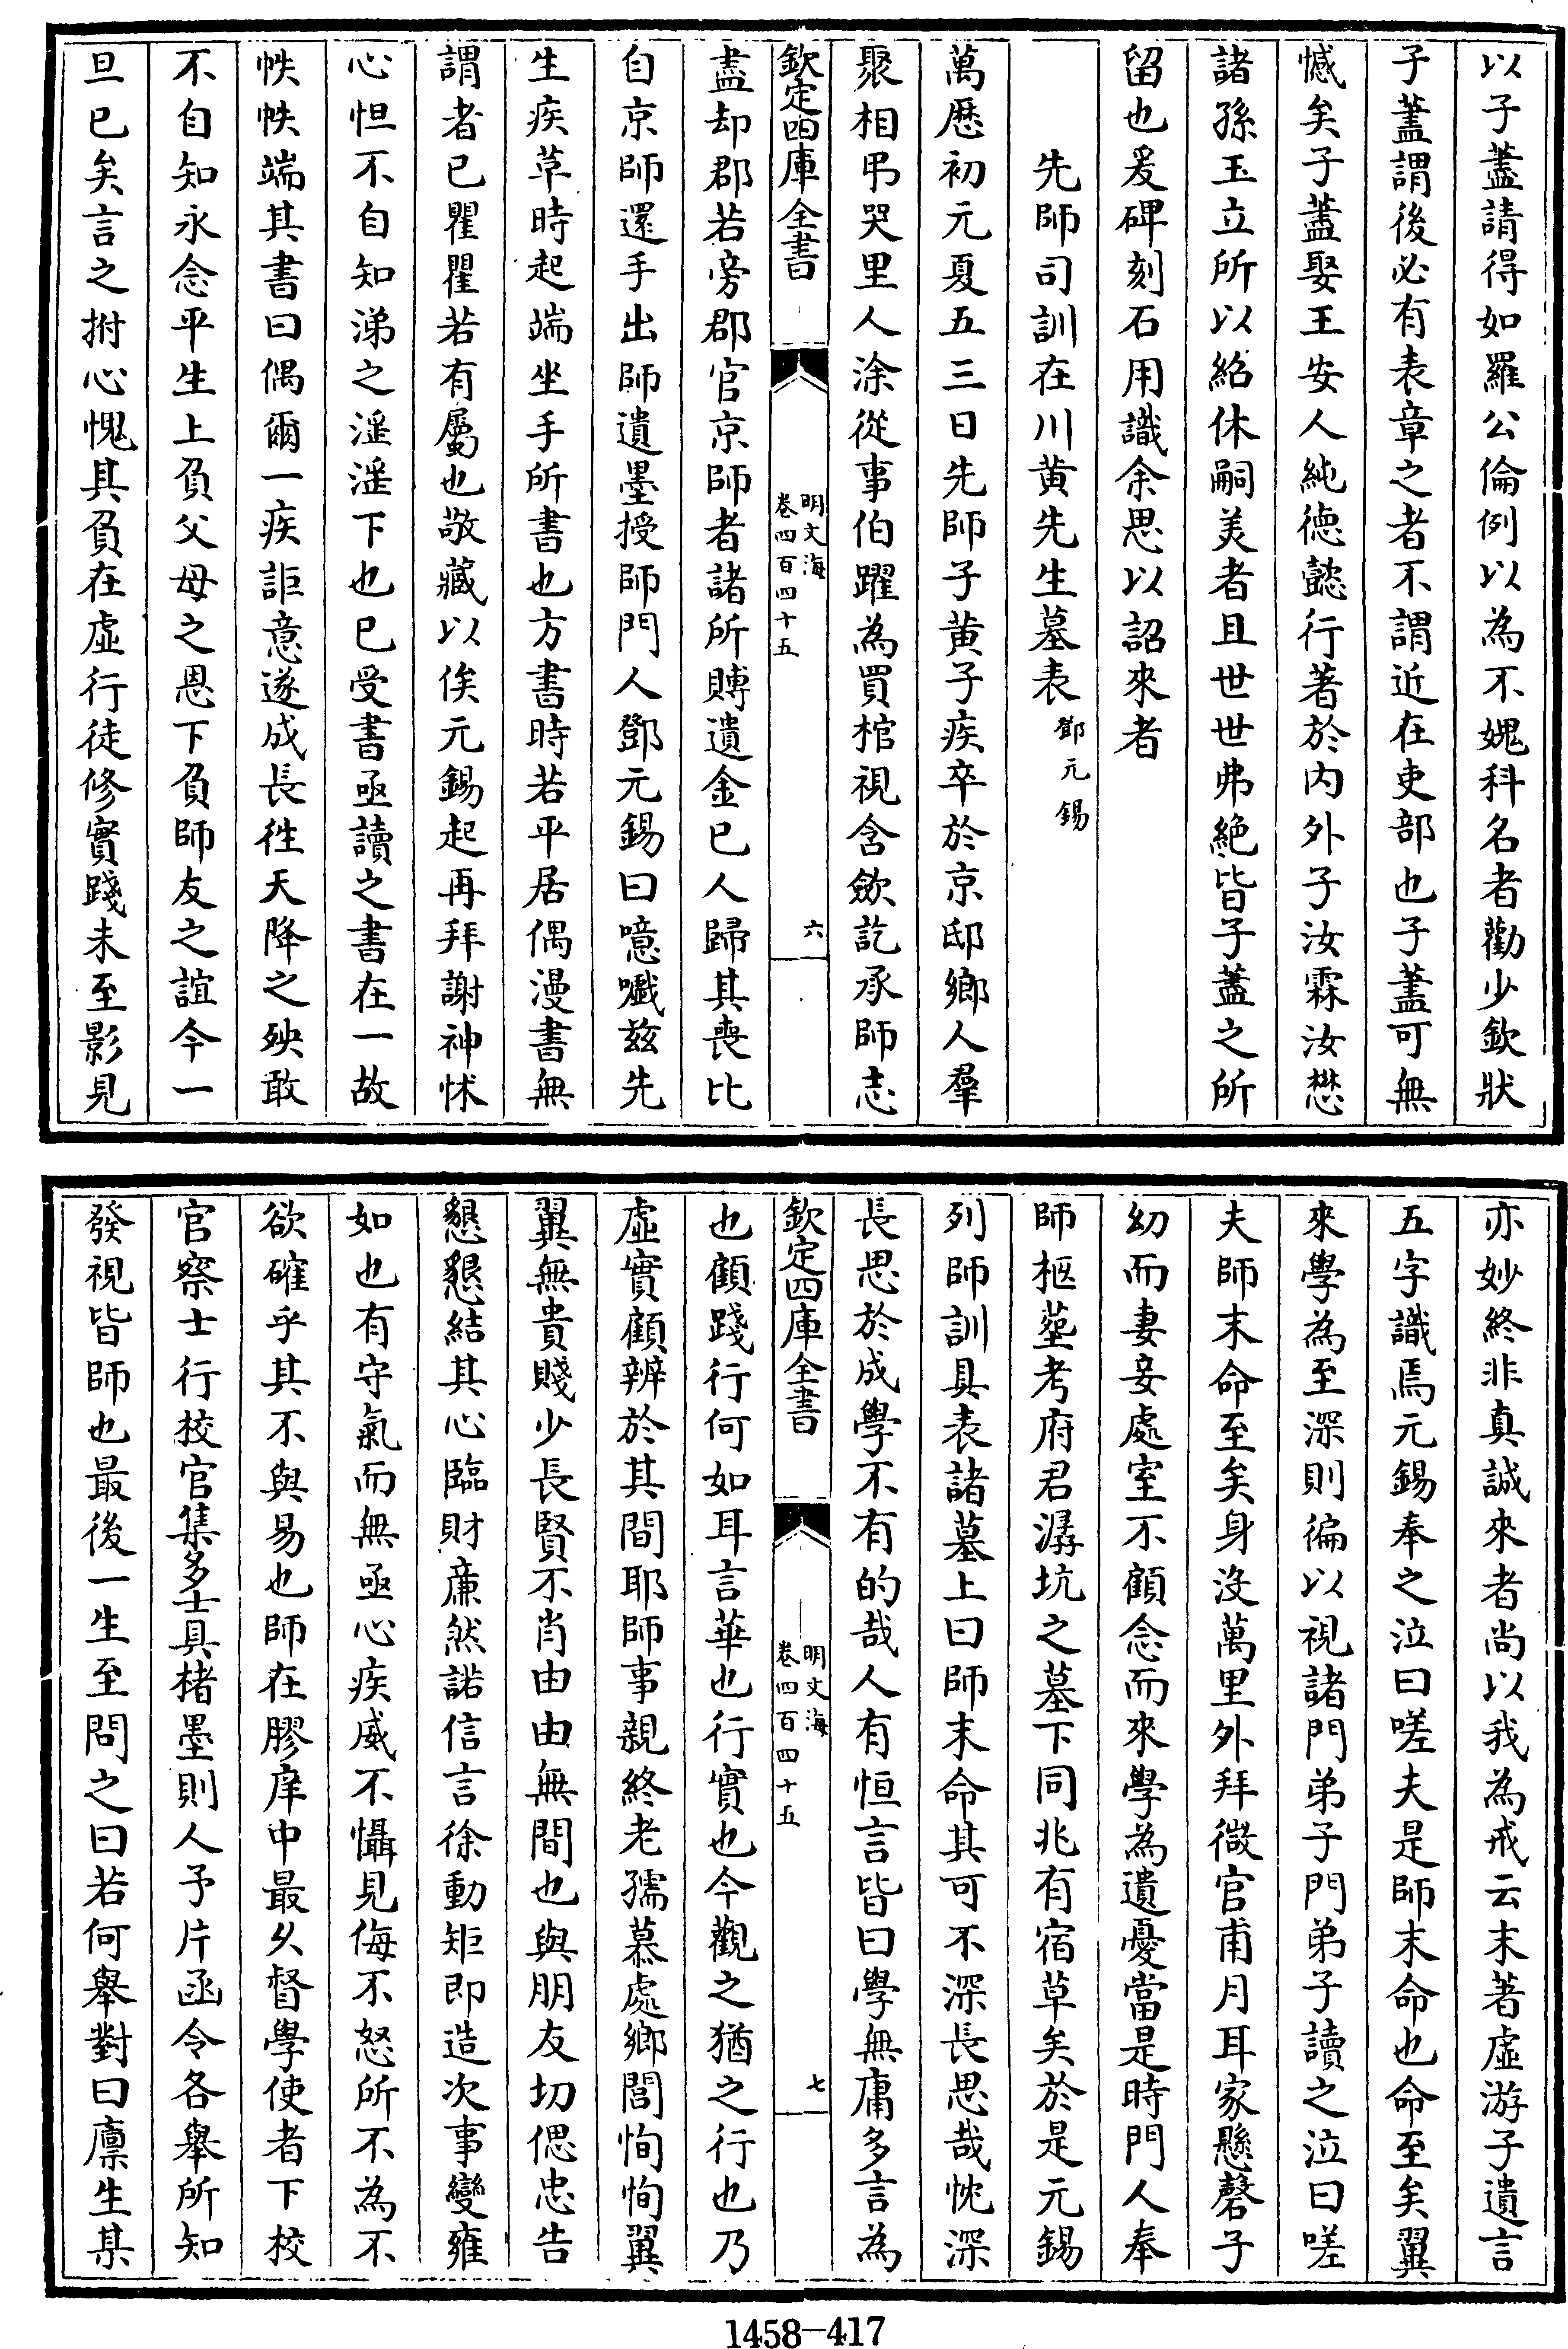 以子蓋請得如羅公倫例以為不媿科名者勸少欽狀
子蓋謂後必有表章之者不謂近在吏部也子蓋可無
憾矣子蓋娶王安人純徳懿行著於内外子汝霖汝懋
諸孫玉立所以紹休嗣美者且世世弗絶皆子蓋之所
留也爰碑刻石用識余思以詔來者
先師司訓在川黄先生墓表 鄧元錫
萬厯初元夏五三日先師子黄子疾卒於京邸鄉人羣
聚相弔哭里人涂從事伯躍為買棺視含歛訖承師志
欽定四庫全書 明文海 卷四百四十五 六
盡却郡若旁郡官京師者諸所賻遺金已人歸其喪比
自京師還手出師遺墨授師門人鄧元錫曰噫嚱兹先
生疾草時起端坐手所書也方書時若平居偶漫書無
謂者已瞿瞿若有屬也敬藏以俟元錫起再拜謝神怵
心怛不自知涕之滛滛下也已受書亟讀之書在一故
帙帙端其書曰偶爾一疾詎意遂成長徃天降之殃敢
不自知永念平生上負父母之恩下負師友之誼今一
旦已矣言之拊心愧其負在虚行徒修實踐未至影見
亦妙終非真誠來者尚以我為戒云末著虚游子遺言
五字識焉元錫奉之泣曰嗟夫是師末命也命至矣翼
來學為至深則徧以視諸門弟子門弟子讀之泣曰嗟
夫師末命至矣身没萬里外拜微官甫月耳家懸磬子
幼而妻妾處室不顧念而來學為遺憂當是時門人奉
師柩塟考府君潺坑之墓下同兆有宿草矣於是元錫
列師訓具表諸墓上曰師末命其可不深長思哉忱深
長思於成學不有的哉人有恒言皆曰學無庸多言為
欽定四庫全書 明文海 卷四百四十五 七
也顧踐行何如耳言華也行實也今觀之猶之行也乃
虚實顧辨於其間耶師事親終老孺慕處鄉閭恂恂翼
翼無貴賤少長賢不肖由由無間也與朋友切偲忠告
懇懇結其心臨財亷然諾信言徐動矩即造次事變雍
如也有守氣而無亟心疾威不懾見侮不怒所不為不
欲確乎其不與易也師在膠庠中最乆督學使者下校
官察士行校官集多士具楮墨則人予片函令各舉所知
發視皆師也最後一生至問之曰若何舉對曰廪生某
1458-417